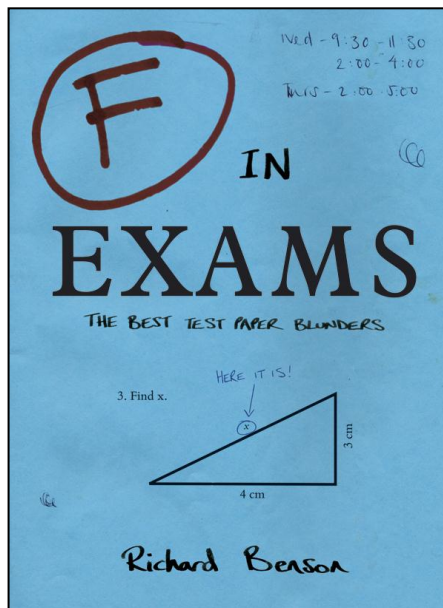 Wed - 9:30 - 11:30
2:00 - 4:00
Thurs - 2:00 - 5:00
F
IN
EXAMS
THE BEST TEST PAPER BLUNDERS
HERE IT IS!
3. Find x.
x
3 cm
4 cm
Richard Benson